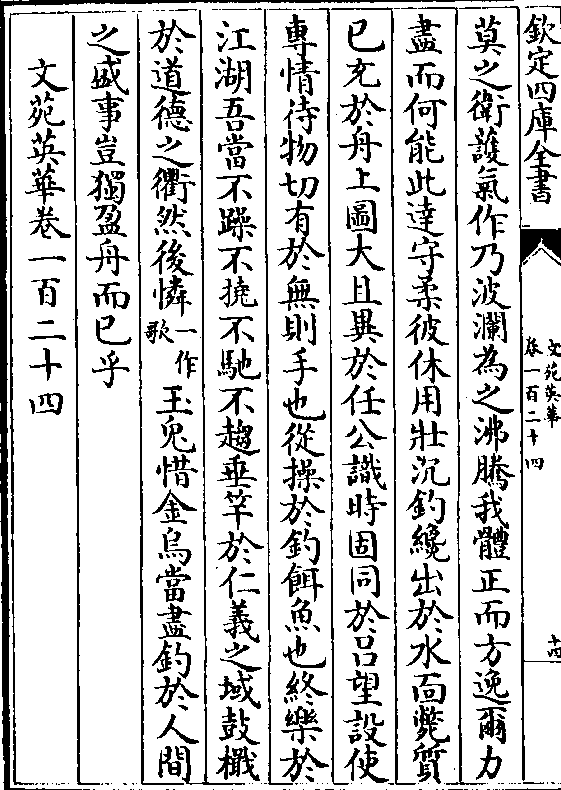 欽定四庫全書
文苑英華
卷一百二十四
十四
莫之衛護氣作乃波瀾為之沸騰我體正而方逸爾力
盡而何能此達守柔彼休用壯沉釣纔出於水面薨質
已充於舟上圖大且異於任公識時固同於吕望設使
專情待物切有於無則手也從操於釣餌魚也終樂於
江湖吾當不躁不撓不馳不趨垂竿於仁義之域鼓檝
於道德之衢然後憐一作歌玉兔惜金烏當盡釣於人間
之盛事豈獨盈舟而已乎
文苑英華卷一百二十四